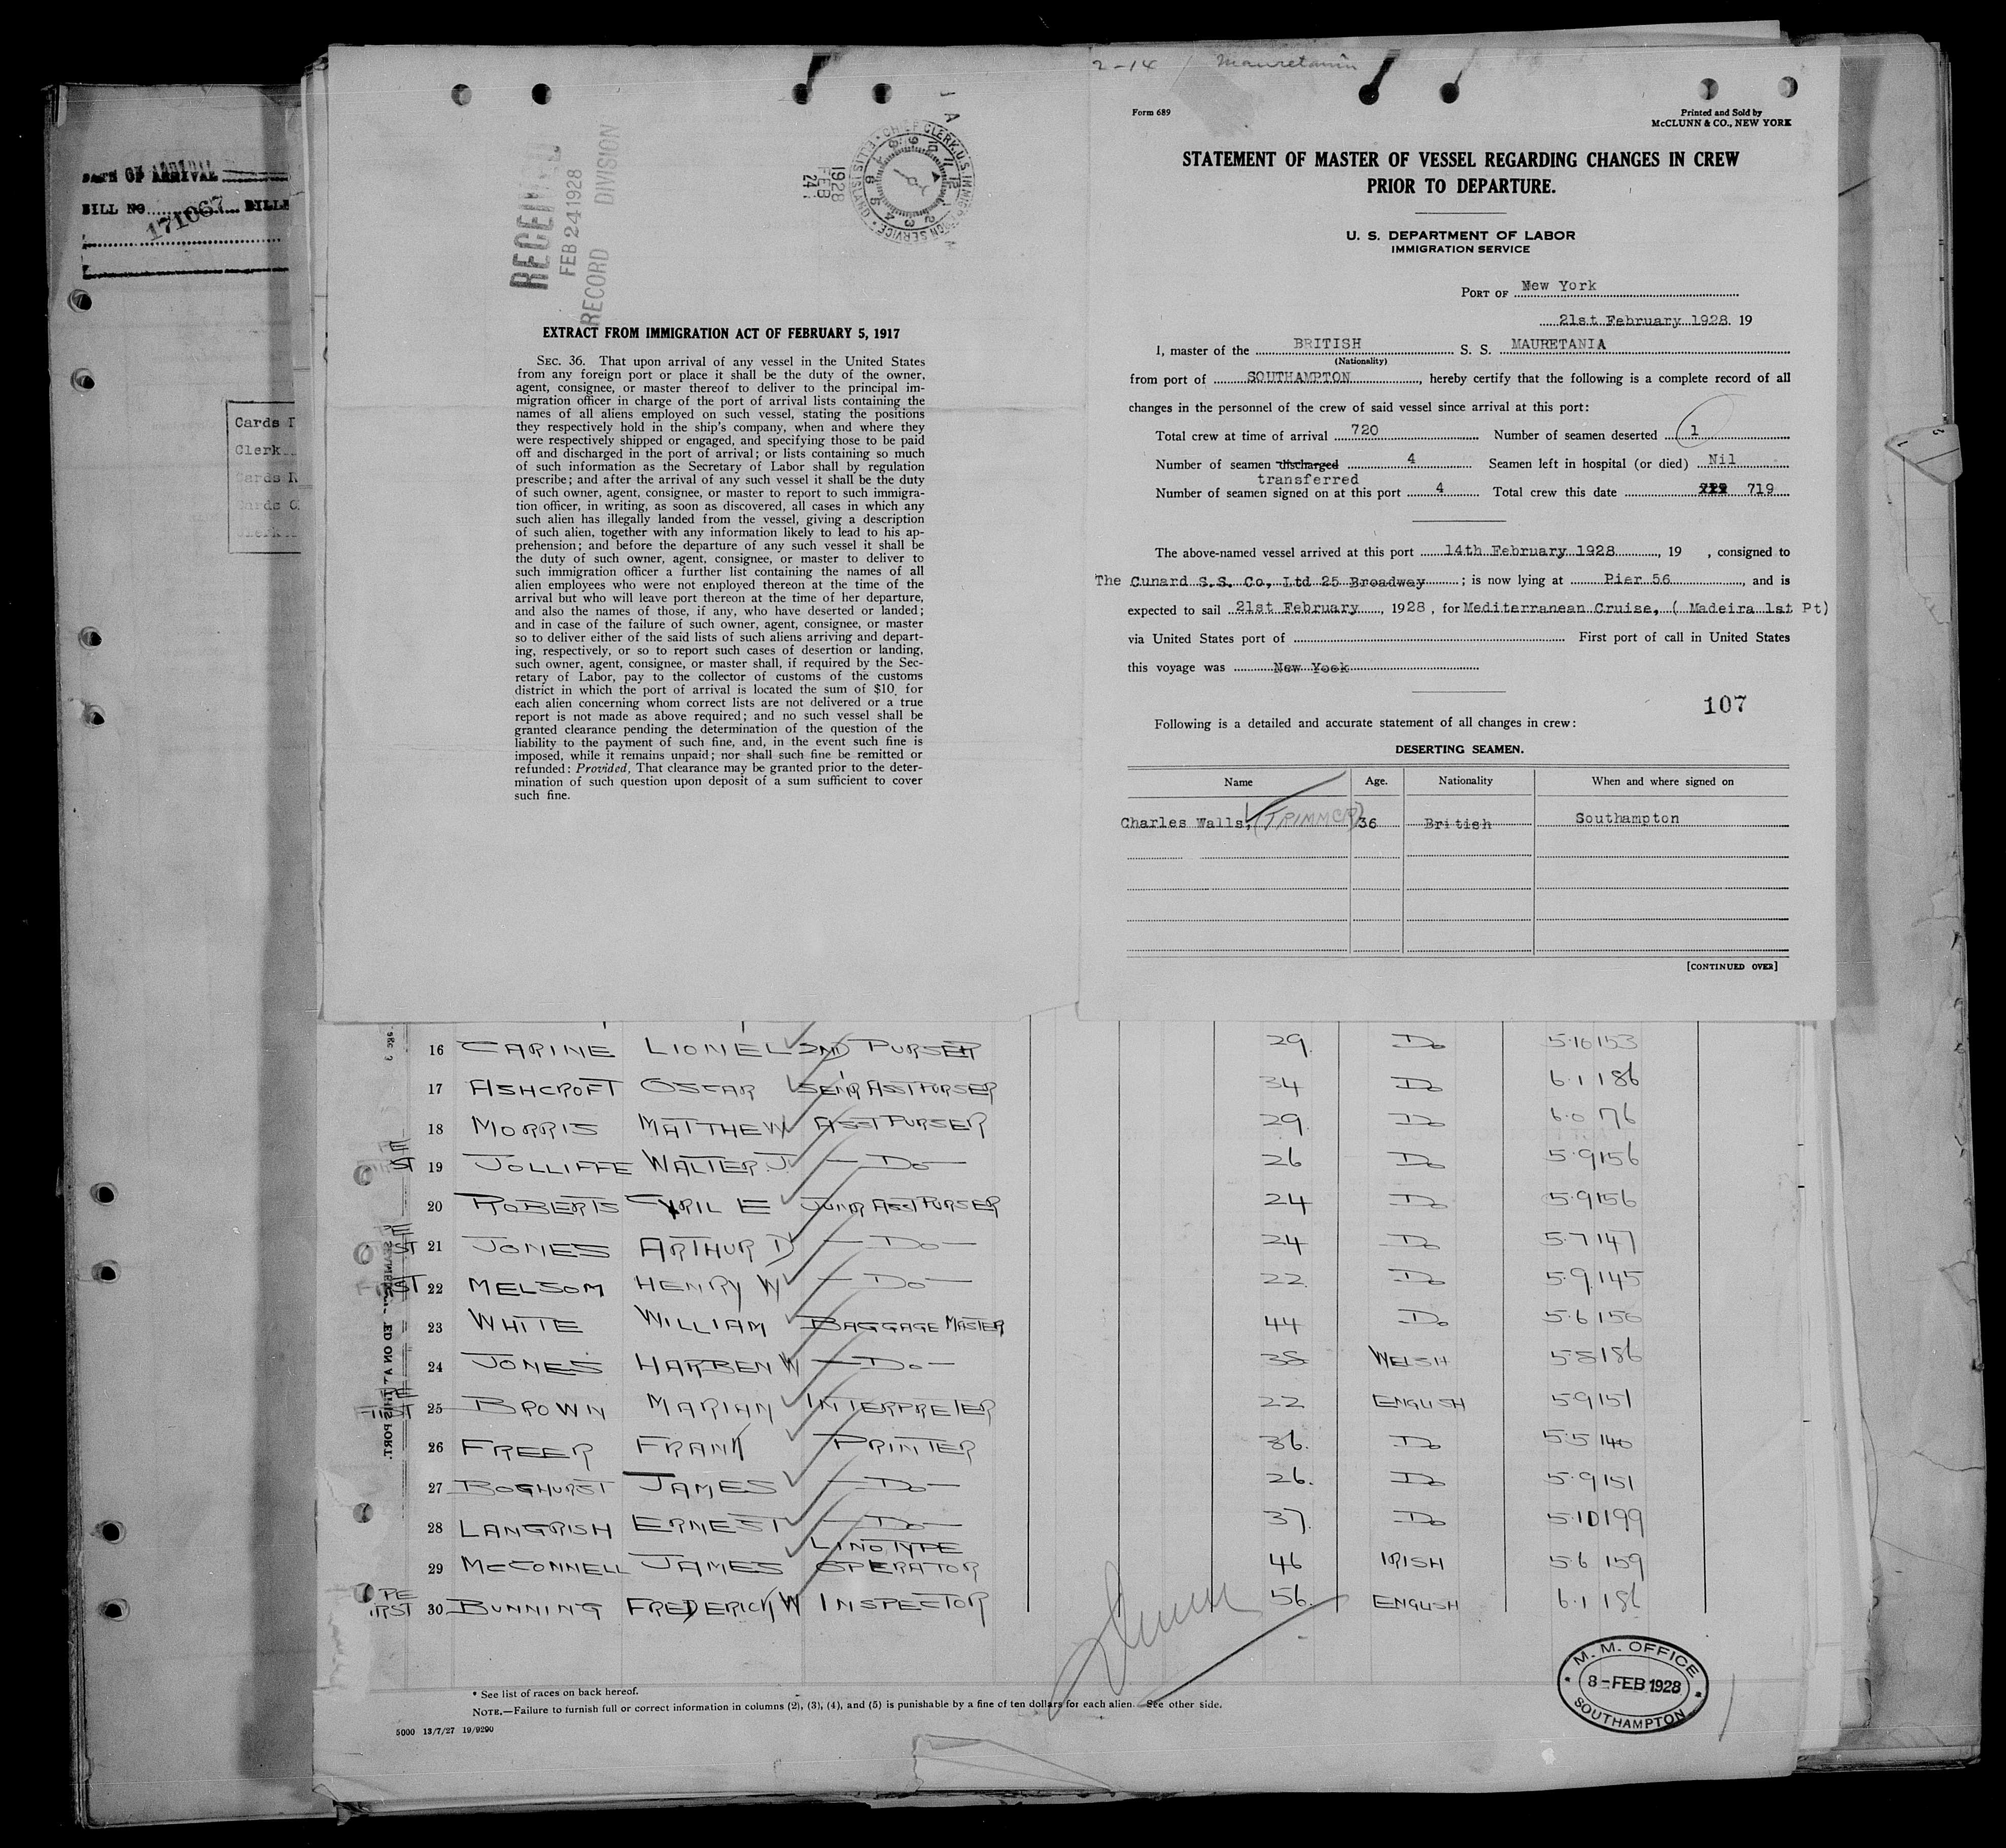 DATE OF ARRIVAL
BILL NO. 171067 BILLE
Cards I
Clerk
Cards R
Cards C
Clerk
RECEIVED
FEB 24 1928
RECORD DIVISION
1928
FEB
24
CHIEF CLERK, U.S. IMMIGRATION SERVICE
ELLIS ISLAND
EXTRACT FROM IMMIGRATION ACT OF FEBRUARY 5, 1917
SEC. 36. That upon arrival of any vessel in the United States
from any foreign port or place it shall be the duty of the owner,
agent, consignee, or master thereof to deliver to the principal im-
migration officer in charge of the port of arrival lists containing the
names of all aliens employed on such vessel, stating the positions
they respectively hold in the ship's company, when and where they
were respectively shipped or engaged, and specifying those to be paid
off and discharged in the port of arrival; or lists containing so much
of such information as the Secretary of Labor shall by regulation
prescribe; and after the arrival of any such vessel it shall be the duty
of such owner, agent, consignee, or master to report to such immigra-
tion officer, in writing, as soon as discovered, all cases in which any
such alien has illegally landed from the vessel, giving a description
of such alien, together with any information likely to lead to his ap-
prehension; and before the departure of any such vessel it shall be
the duty of such owner, agent, consignee, or master to deliver to
such immigration officer a further list containing the names of all
alien employees who were not employed thereon at the time of the
arrival but who will leave port thereon at the time of her departure,
and also the names of those, if any, who have deserted or landed;
and in case of the failure of such owner, agent, consignee, or master
so to deliver either of the said lists of such aliens arriving and depart-
ing, respectively, or so to report such cases of desertion or landing,
such owner, agent, consignee, or master shall, if required by the Sec-
retary of Labor, pay to the collector of customs of the customs
district in which the port of arrival is located the sum of $10 for
each alien concerning whom correct lists are not delivered or a true
report is not made as above required; and no such vessel shall be
granted clearance pending the determination of the question of the
liability to the payment of such fine, and, in the event such fine is
imposed, while it remains unpaid; nor shall such fine be remitted or
refunded: Provided, That clearance may be granted prior to the deter-
mination of such question upon deposit of a sum sufficient to cover
such fine.
2-14 / Mauretania
Form 689
Printed and Sold by
McCLUNN & CO., NEW YORK
STATEMENT OF MASTER OF VESSEL REGARDING CHANGES IN CREW
PRIOR TO DEPARTURE.
U. S. DEPARTMENT OF LABOR
IMMIGRATION SERVICE
PORT OF New York
21st February 1928. 19
I, master of the BRITISH S. S. MAURETANIA
(Nationality)
from port of SOUTHAMPTON, hereby certify that the following is a complete record of all
changes in the personnel of the crew of said vessel since arrival at this port:
Total crew at time of arrival 720 Number of seamen deserted 1
Number of seamen discharged 4 Seamen left in hospital (or died) Nil
transferred
Number of seamen signed on at this port 4 Total crew this date 719
The above-named vessel arrived at this port 14th February 1928, 19 , consigned to
The Cunard S.S. Co, Ltd 25 Broadway; is now lying at Pier 56, and is
expected to sail 21st February, 1928, for Mediterranean Cruise, ( Madeira 1st Pt)
via United States port of First port of call in United States
this voyage was New York
107
Following is a detailed and accurate statement of all changes in crew:
DESERTING SEAMEN.
Name Age. Nationality When and where signed on
Charles Walls, (TRIMMER) 36 British Southampton
[CONTINUED OVER]
16 CARINE LIONEL 2ND PURSER 29. Do 5.10 153
17 ASHCROFT OSCAR SENR ASST PURSER 34 Do 6.1 186
18 MORRIS MATTHEW ASST PURSER 29. Do 6.0 176
19 JOLLIFFE WALTER.J. —Do— 26 Do 5.9 156
20 ROBERTS CYRIL E JUNR ASST PURSER 24 Do 5.9 156
21 JONES ARTHUR D —Do— 24 Do 5.7 147
22 MELSOM HENRY W —Do— 22. Do 5.9. 145
23 WHITE WILLIAM BAGGAGE MASTER 44 Do 5.6 150
24 JONES HARBEN W —Do— 38 WELSH 5.8 186
25 BROWN MARIAN INTERPRETER 22 ENGLISH 5.9 151
26 FREER FRANK PRINTER 36. Do 5.5 140
27 BOGHURST JAMES —Do— 26. Do 5.9 151
28 LANGRISH ERNEST —Do— 37. Do 5.10 199
29 McCONNELL JAMES LINOTYPE OPERATOR 46 IRISH 5.6 159
30 BUNNING FREDERICK W INSPECTOR 56. ENGLISH 6.1 186
M. M. OFFICE
8-FEB 1928
SOUTHAMPTON
* See list of races on back hereof.
NOTE.—Failure to furnish full or correct information in columns (2), (3), (4), and (5) is punishable by a fine of ten dollars for each alien. See other side.
5000 13/7/27 19/9290